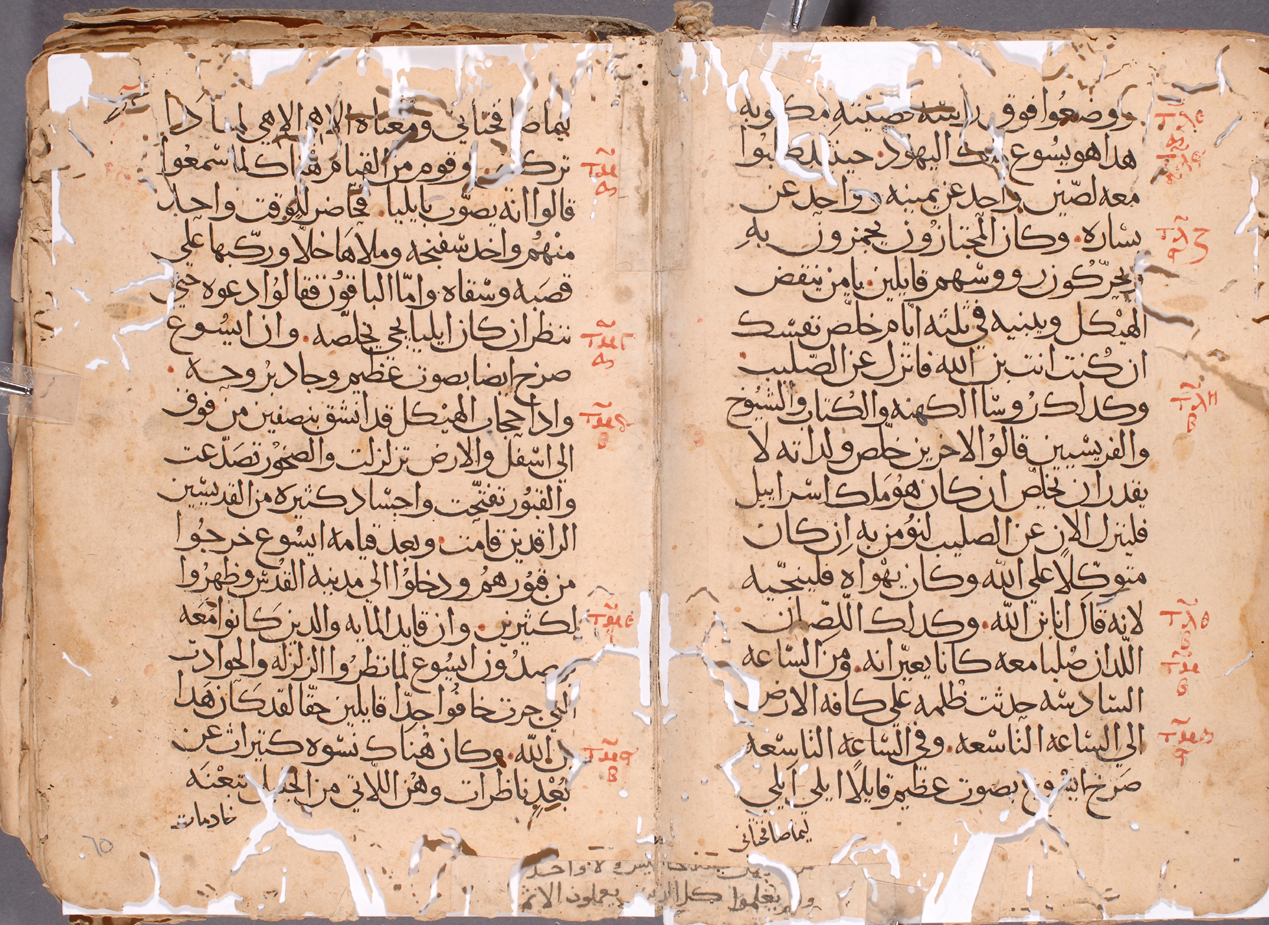 ووضعوا فوق راسه نصبته مكتوبه
هدا هو يسوع ملك اليهود. حينيد صلبوا
معه لصين واحد عن يمينه وواحد عن
يساره. وكان المجتازون يجمزون به
ويحركون رووسهم قايلين. يا من ينقض
الهيكل ويبنيه في ثلثه ايام خلص نفسك
ان كنت انت ابن الله فانزل عن الصليب.
وكداك روسا الكهنه والكتاب والشيوخ
والفريسيين قالوا لاخرين خلص ولداته لا
يقدر ان يخلص ان كان هو ملك اسراييل
فلينزل الان عن الصليب لنومن به ان كان
متوكلا علي الله وكان يهواه فلينجيه
لانه قال انا ابن الله. وكداك اللصان
اللدان صلبا معه كانا يعيرانه. ومن الساعه
السادسه حدثت ظلمه علي كافه الارض
الي الساعه التاسعه. وفي الساعه التاسعه
صرخ ايسوع بصوت عظيم قايلا ايلي ايلي
ليماصافختاني
ليماصافختاني ومعناه الاهي الاهي لمادا
تركتني. وقوم من القيام هناك لما سمعوا
قالوا انه يصوت بايليا. فحاضر للوقت واحد
منهم واخد سفنجه وملاها خلا وركبها علي
قصبه وسقاه واما الباقون فقالوا دعوه حتي
ننظر ان كان ايليا يجي يخلصه. وان ايسوع
صرخ ايضا بصوت عظيم وجاد بروحه.
وادا حجاب الهيكل قد انشق بنصفين من فوق
الي اسفل والارض تزلزلت والصخور تصدعت
والقبور تفتحت واجساد كثيره من القديسين
الراقدين قامت وبعد قيامه ايسوع خرجوا
من قبورهم ودخلوا الي مدينه القدس وظهروا
لكثيرين. وان قايد المايه والدين كانوا معه
يرصدون ايسوع لما نظروا الزلزله والحوادث
التي جرت خافوا جدا قايلين حقا لقد كان هدا
ابن الله. وكان هناك نسوه كثيرات عن
بعد ناظرات وهن اللاتي من الجليل تبعنه
خادمات
٦٥
واحد
يعلموا كل الدين يعملون الاثم